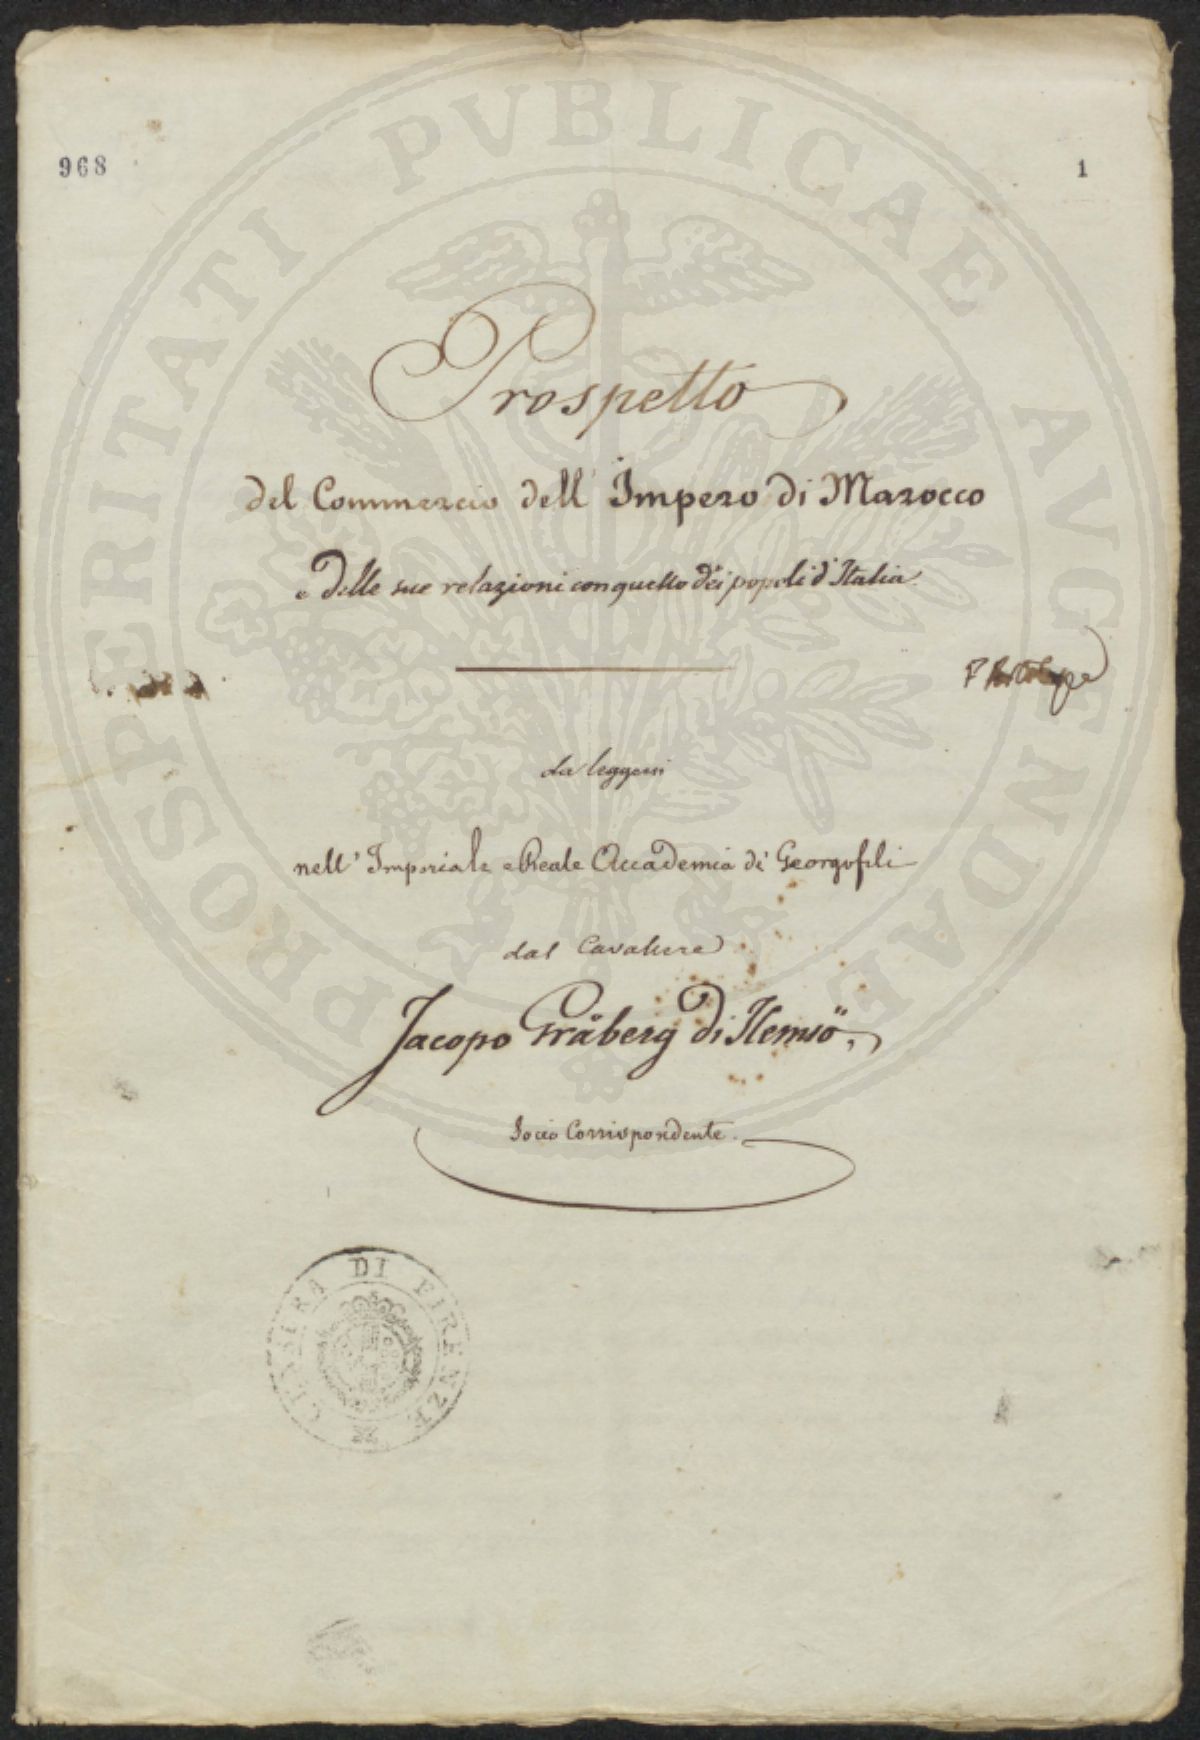 PROSPERITATI PVBLICAE AVGENDAE
968
1
Prospetto
del Commercio dell' Impero di Marocco
e delle sue relazioni con quello dei popoli d'Italia
da leggersi
nell' Imperiale e Reale Accademia di Georgofili
dal Cavaliere
Jacopo Gråberg di Hemsö,
Socio Corrispondente.
DI FIRENZE